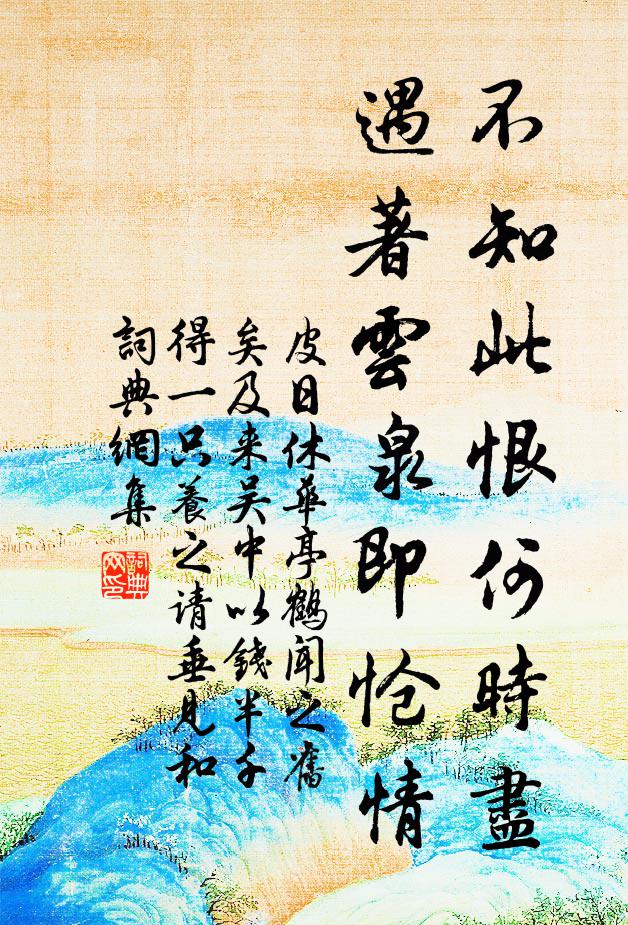 不知此恨何時盡
遇著雲泉即愴情
皮日休華亭鶴聞之舊
矣及来吴中以錢半千
得一只養之請垂見和
詞典網集
詞典